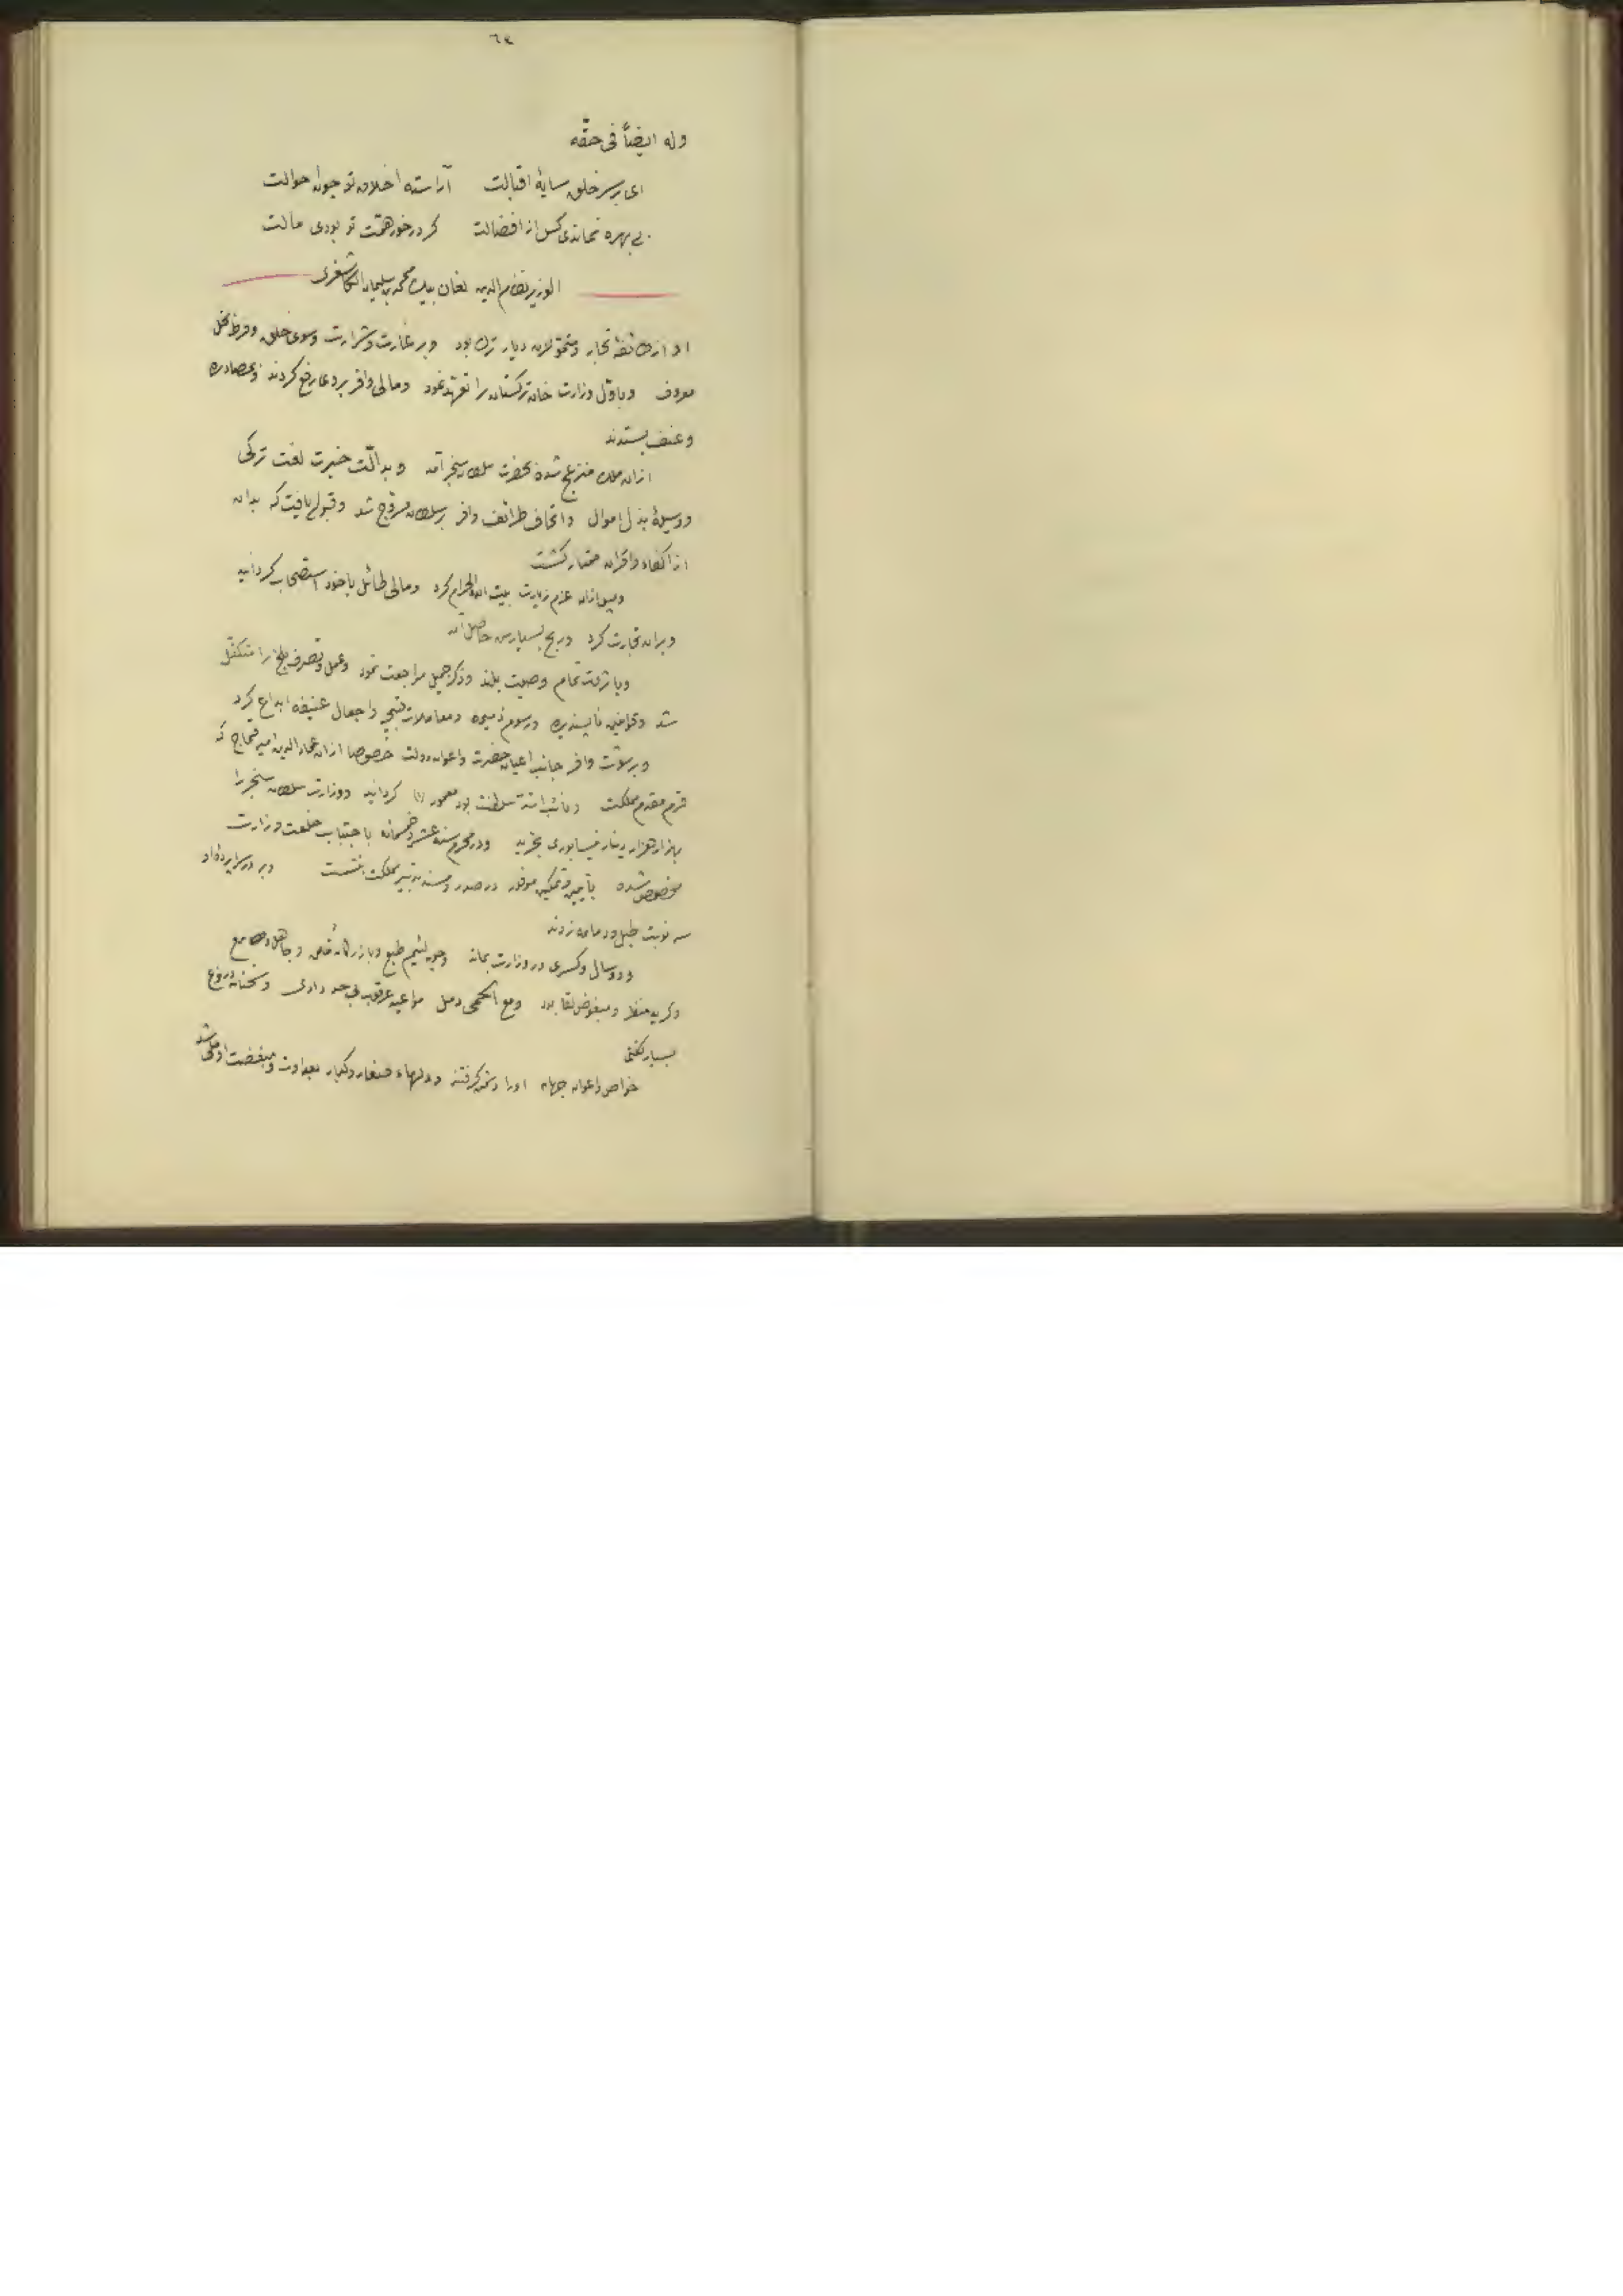 ٦٤
وله ایضاً فی حقّه
ای بر سر خلق سایهٔ اقبالت آراسته اخلاق تو چون احوالت
بی بهره نماندی کس از افضالت گر در خور همّت تو بودی مالت
الوزیر نظام الدین لغان بیک محمد بن سلیمان الکاشغری
او از طائفهٔ تجار و متمولان دیار ترک بود وبر غارت وشرارت وسوی خلق وفرط بخل
معروف وباوّل وزارت خان ترکستان را تعهد نمود ومالی وافر برو عا رفع کردند وبمصادره
وعنف بستدند
ازان ملک منزعج شده بحضرت سلطان سنجر آمد وبدالّت خبرت لغت ترکی
ووسیلهٔ بذل اموال واتحاف طرائف وافر بر سلطان مروّج شد وقبولی یافت که بدان
از اکفاء واقران ممتاز کشت
وپس ازان عزم زیارت بیت الله الحرام کرد ومالی طائل با خود استصحاب کردانید
وبران تجارت کرد وربح بسیارش حاصل آمد
وبا ثروت تمام وصیت بلند وذکر جمیل مراجعت نمود وعمل وتصرف بلخ را متکفّل
شد وقوانین ناپسندیده ورسوم ذمیمه ومعاملات قبیح واجعال عنیفه ابداع کرد
وبرشوت وافر جانب اعیان حضرت واعوان دولت خصوصا ازان عماد الدین امیر قماج که
قرم مقدم مملکت سلطنت بود معمور (١) کردانید ووزارت سلطان سنجر را
بهزار هزار دینار نیسابوری بخرید ودر محرم سنه عشر وخمسمائه باجتباب خلعت وزارت
مخصوص شده موفور در صدر ومسند تدبیر مملکت بنشست وبر در سراپردهٔ او
سه نوبت طبل ودمامه زدند
ودو سال وکسری در وزارت بماند وچون لئیم طبع وبازرگان وجاهل
وکریه منظر ومبغوض لقا بود ومع مواعید عرقوب بی حد دادی وسخنان دروغ
بسیار کفتی
خواص واعوان جهان اورا دشمن کرفتند ودلهاء صغار وکبار بعداوت ومبغضت او ملی شد